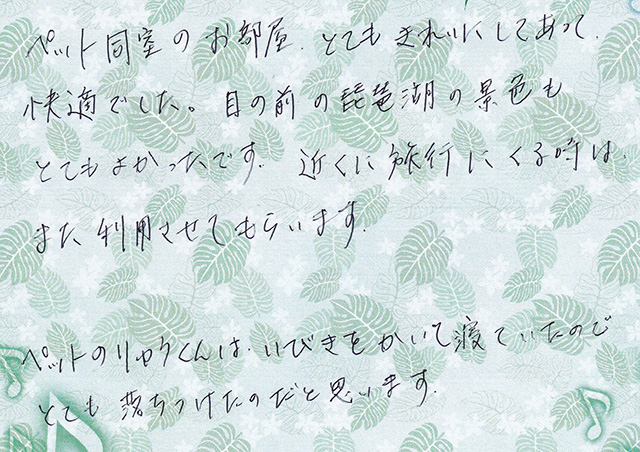 ペット同室のお部屋、とてもきれいにしてあって、
快適でした。目の前の琵琶湖の景色も
とてもよかったです。近くに旅行にくる時は、
また利用させてもらいます。
ペットのりゅうくんは、いびきをかいて寝ていたので
とても落ちつけたのだと思います。